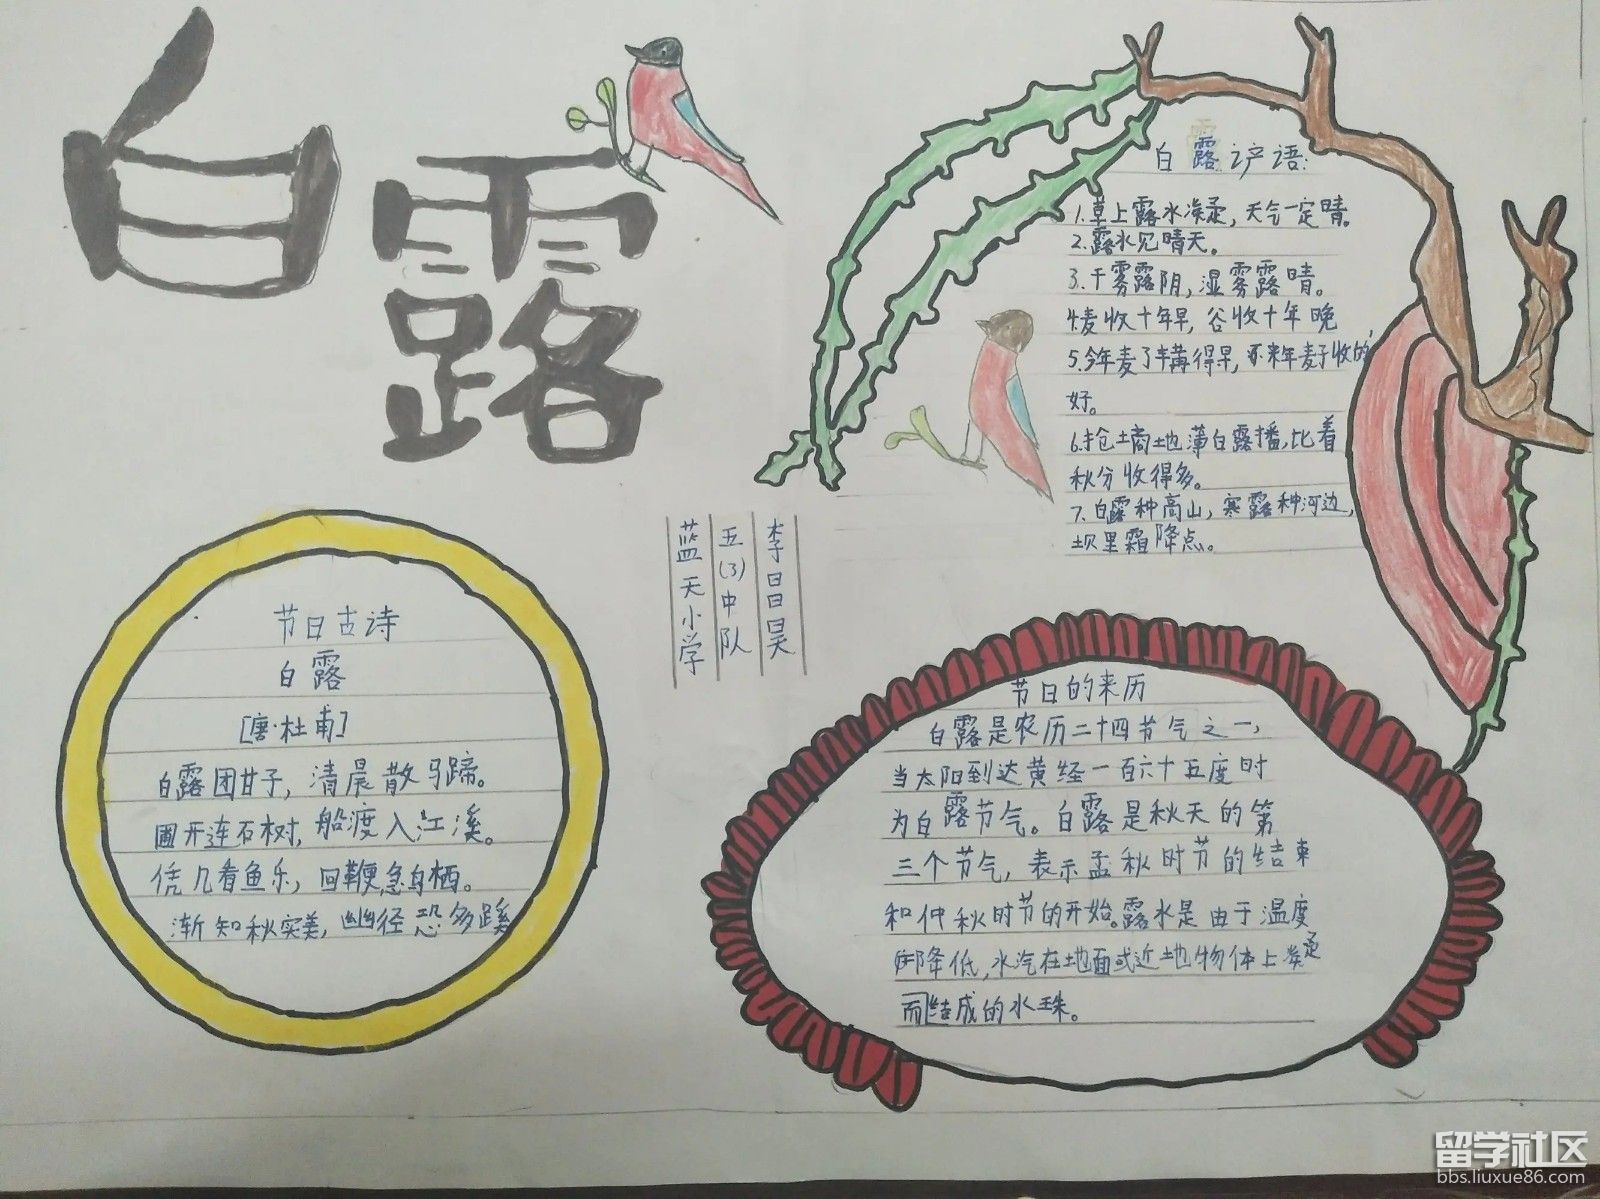 白露
白露谚语:
1.草上露水凝,天气一定晴。
2.露水见晴天。
3.干雾露阴,湿雾露晴。
4.麦收十年早,谷收十年晚
5.今年麦子讲得早,来年麦子收的
好。
6.抢墒地薄白露播,比着
秋分收得多。
7.白露种高山,寒露种河边,
坝里霜降点。
节日古诗
白露
[唐·杜甫]
白露团甘子,清晨散马蹄。
圃开连石树,船渡入江溪。
凭几看鱼乐,回鞭急鸟栖。
渐知秋实美,幽径恐多蹊
蓝天小学
五(3)中队
李昌昊
节日的来历
白露是农历二十四节气之一,
当太阳到达黄经一百六十五度时
为白露节气。白露是秋天的第
三个节气,表示孟秋时节的结束
和仲秋时节的开始。露水是由于温度
降低,水汽在地面或近地物体上凝
而结成的水珠。
留学社区
bbs.liuxue86.com